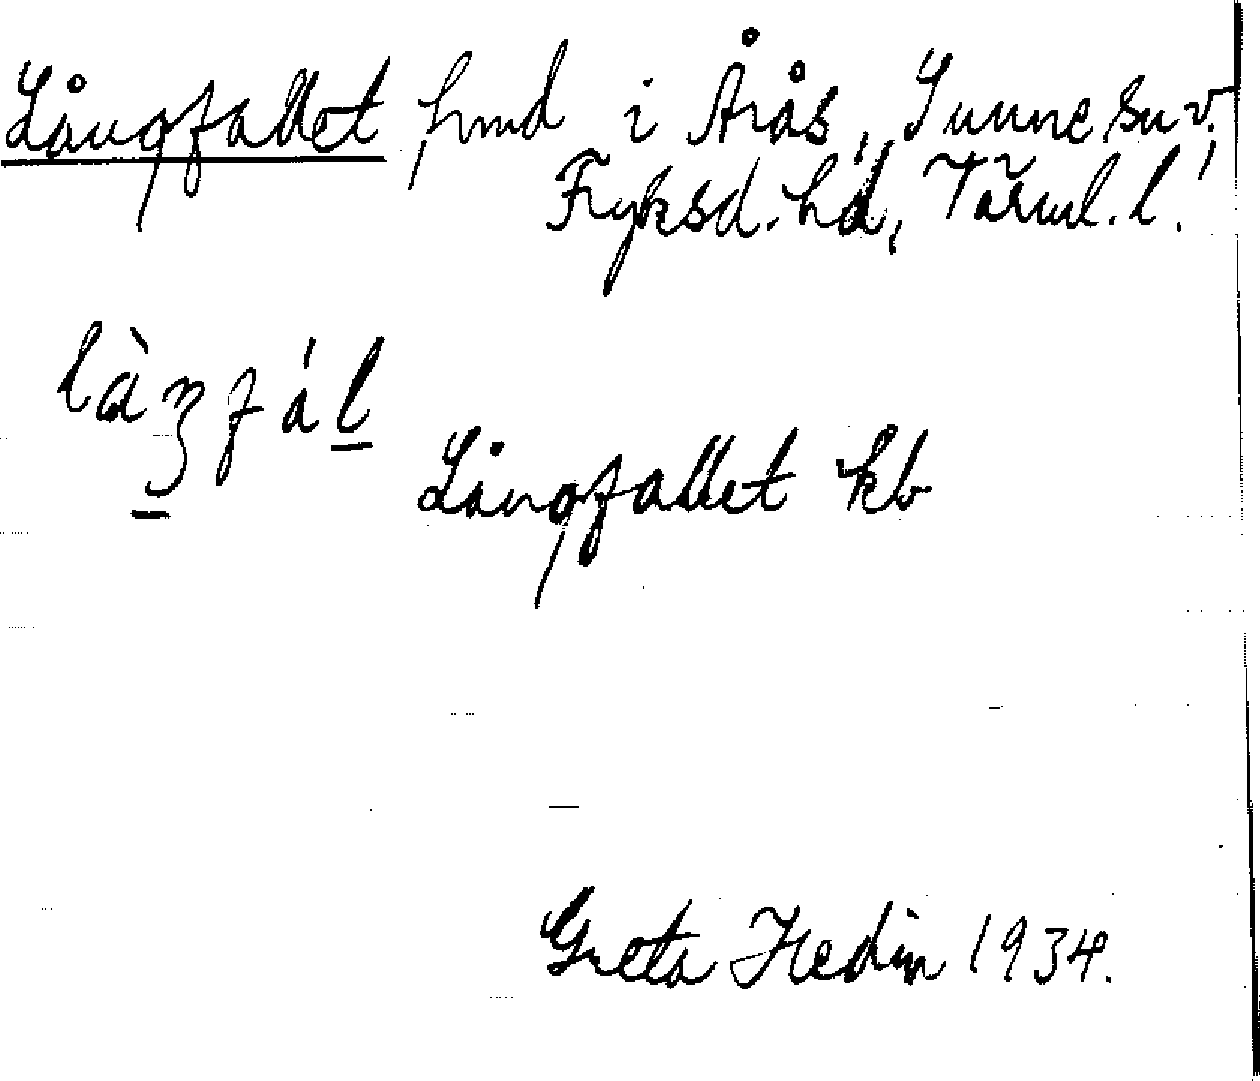 Långfallet hmd i Årås, Sunne sn v.,
Fryksd. hd, Värml. l.
làŋfál
Långfallet kb
Greta Hedin 1934.